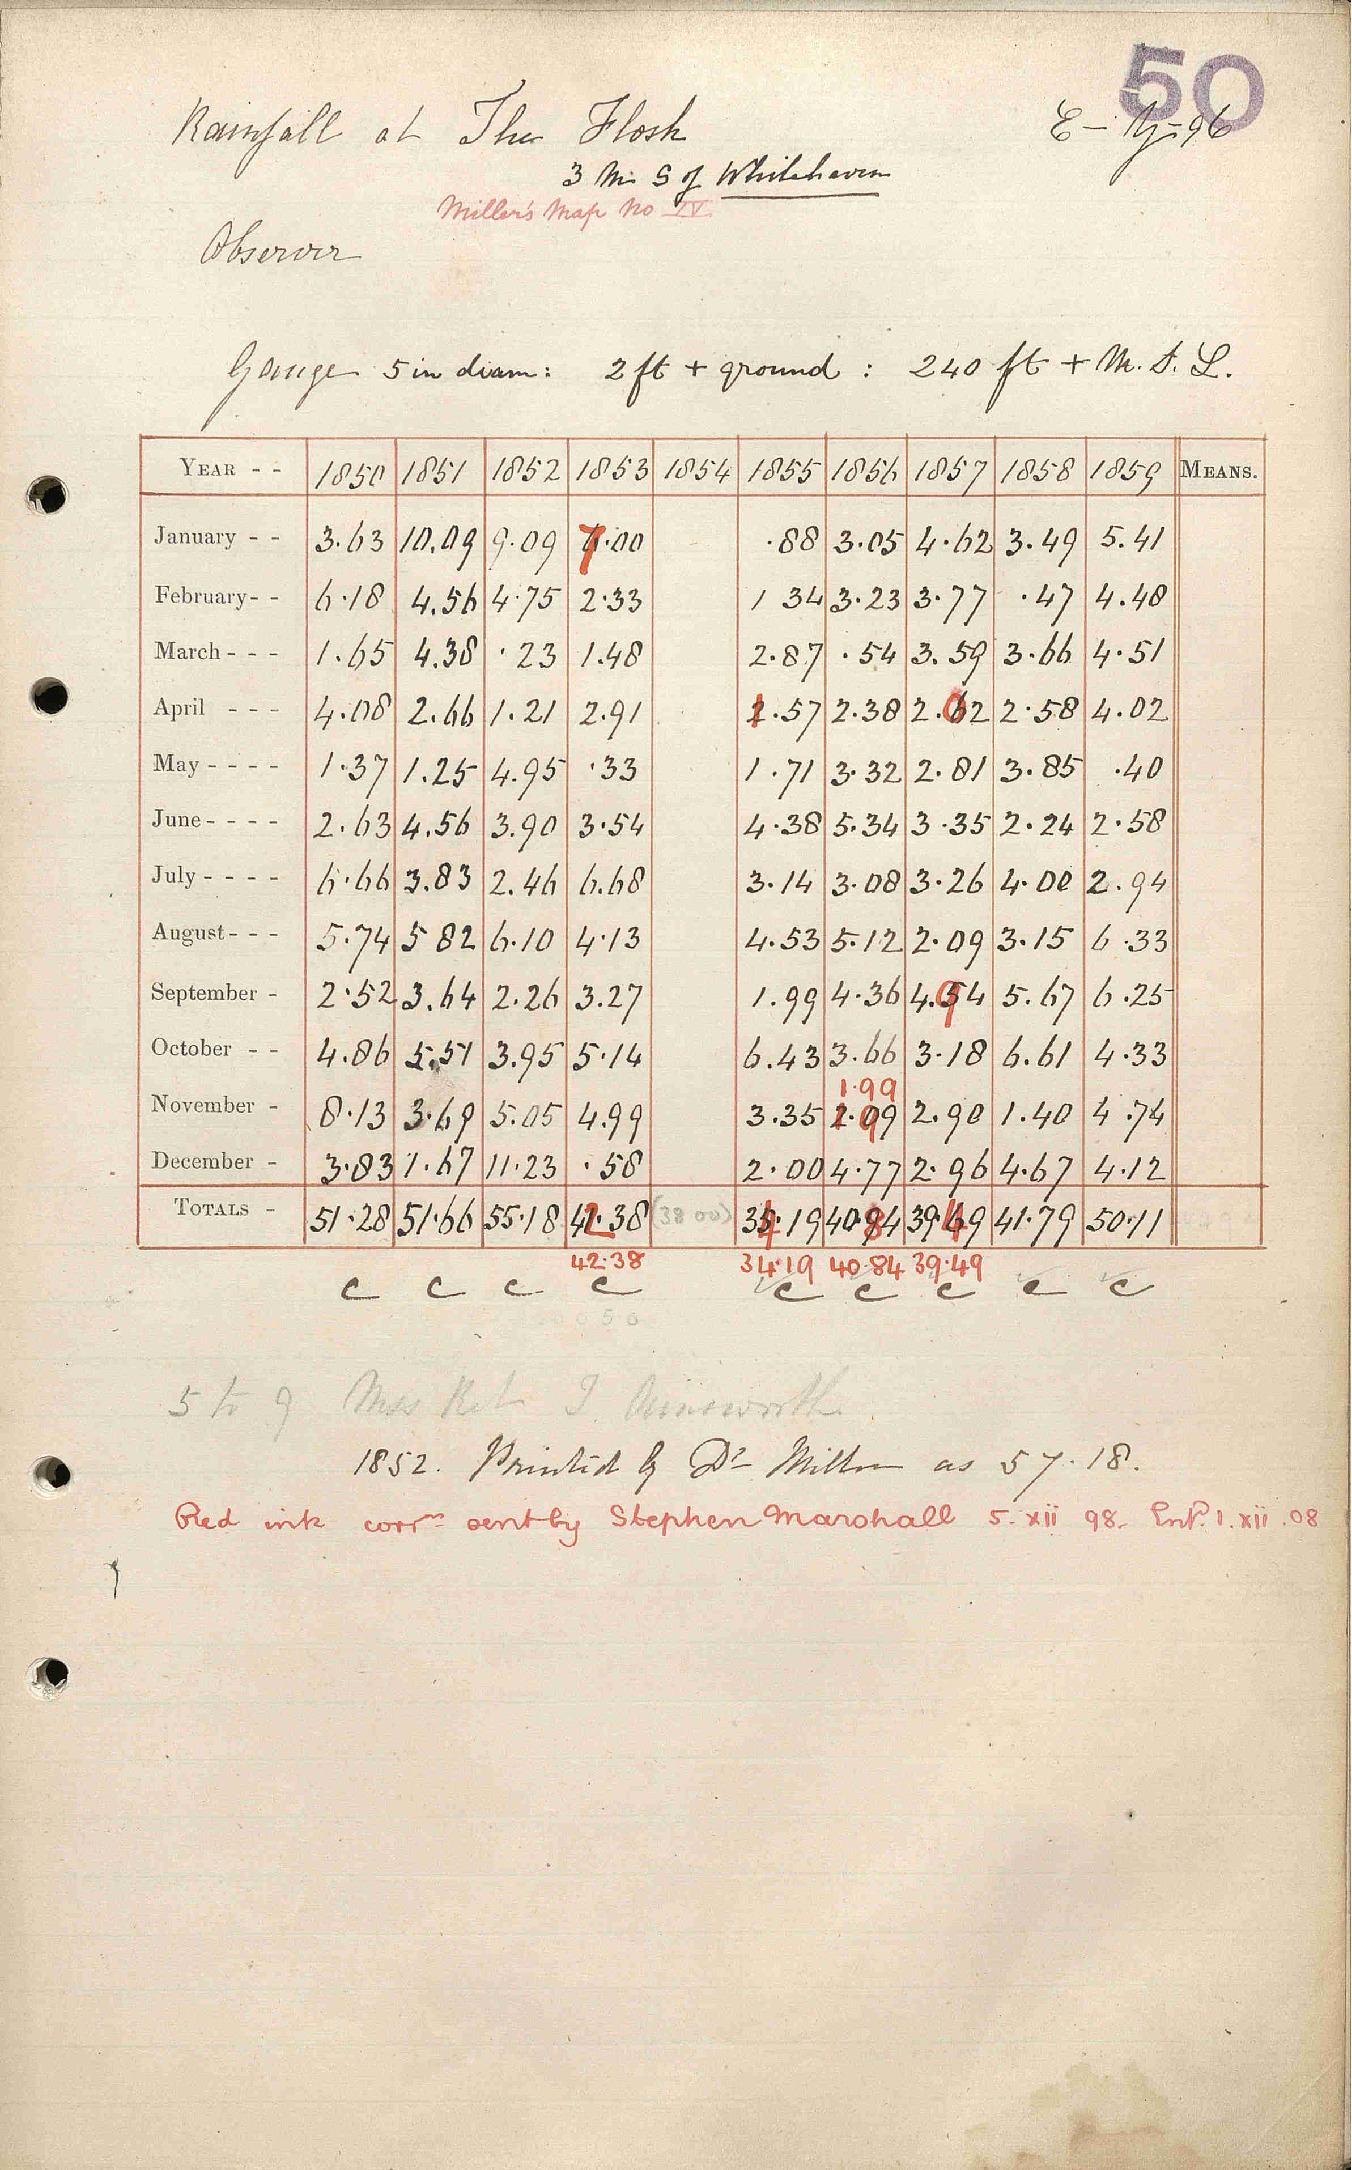 50
Rainfall at The Flosh
3 M. S of Whitehaven
Miller's Map No IV
Observer
Gauge 5 in diam: 2 ft + ground : 240 ft + M.S.L.
YEAR - - 1850 1851 1852 1853 1854 1855 1856 1857 1858 1859 MEANS.
January - - 3.63 10.09 9.09 7.00 .88 3.05 4.62 3.49 5.41
February - - 6.18 4.56 4.75 2.33 1 34 3.23 3.77 .47 4.48
March - - - 1.65 4.38 .23 1.48 2.87 .54 3.59 3.66 4.51
April - - - 4.08 2.66 1.21 2.91 1.57 2.38 2.02 2.58 4.02
May - - - - 1.37 1.25 4.95 .33 1.71 3.32 2.81 3.85 .40
June - - - - 2.63 4.56 3.90 3.54 4.38 5.34 3.35 2.24 2.58
July - - - - 6.66 3.83 2.46 6.68 3.14 3.08 3.26 4.00 2.94
August - - - 5.74 5 82 6.10 4.13 4.53 5.12 2.09 3.15 6.33
September - 2.52 3.64 2.26 3.27 1.99 4.36 4.94 5.67 6.25
October - - 4.86 5.51 3.95 5.14 6.43 3.66 3.18 6.61 4.33
1.99
November - 8.13 3.69 5.05 4.99 3.35 2.09 2.90 1.40 4.74
December - 3.83 1.67 11.23 .58 2.00 4.77 2.96 4.67 4.12
TOTALS - 51.28 51.66 55.18 42.38 (38 00) 34.19 40.84 39.49 41.79 50.11
42.38 34.19 40.84 39.49
c c c c c c c c c
5 to 9 Mss Ret J. Ainsworth
1852. Printed by Dr Miller as 57.18.
Red ink corrn sent by Stephen Marshall 5. xii 98. Entd. 1. xii .08